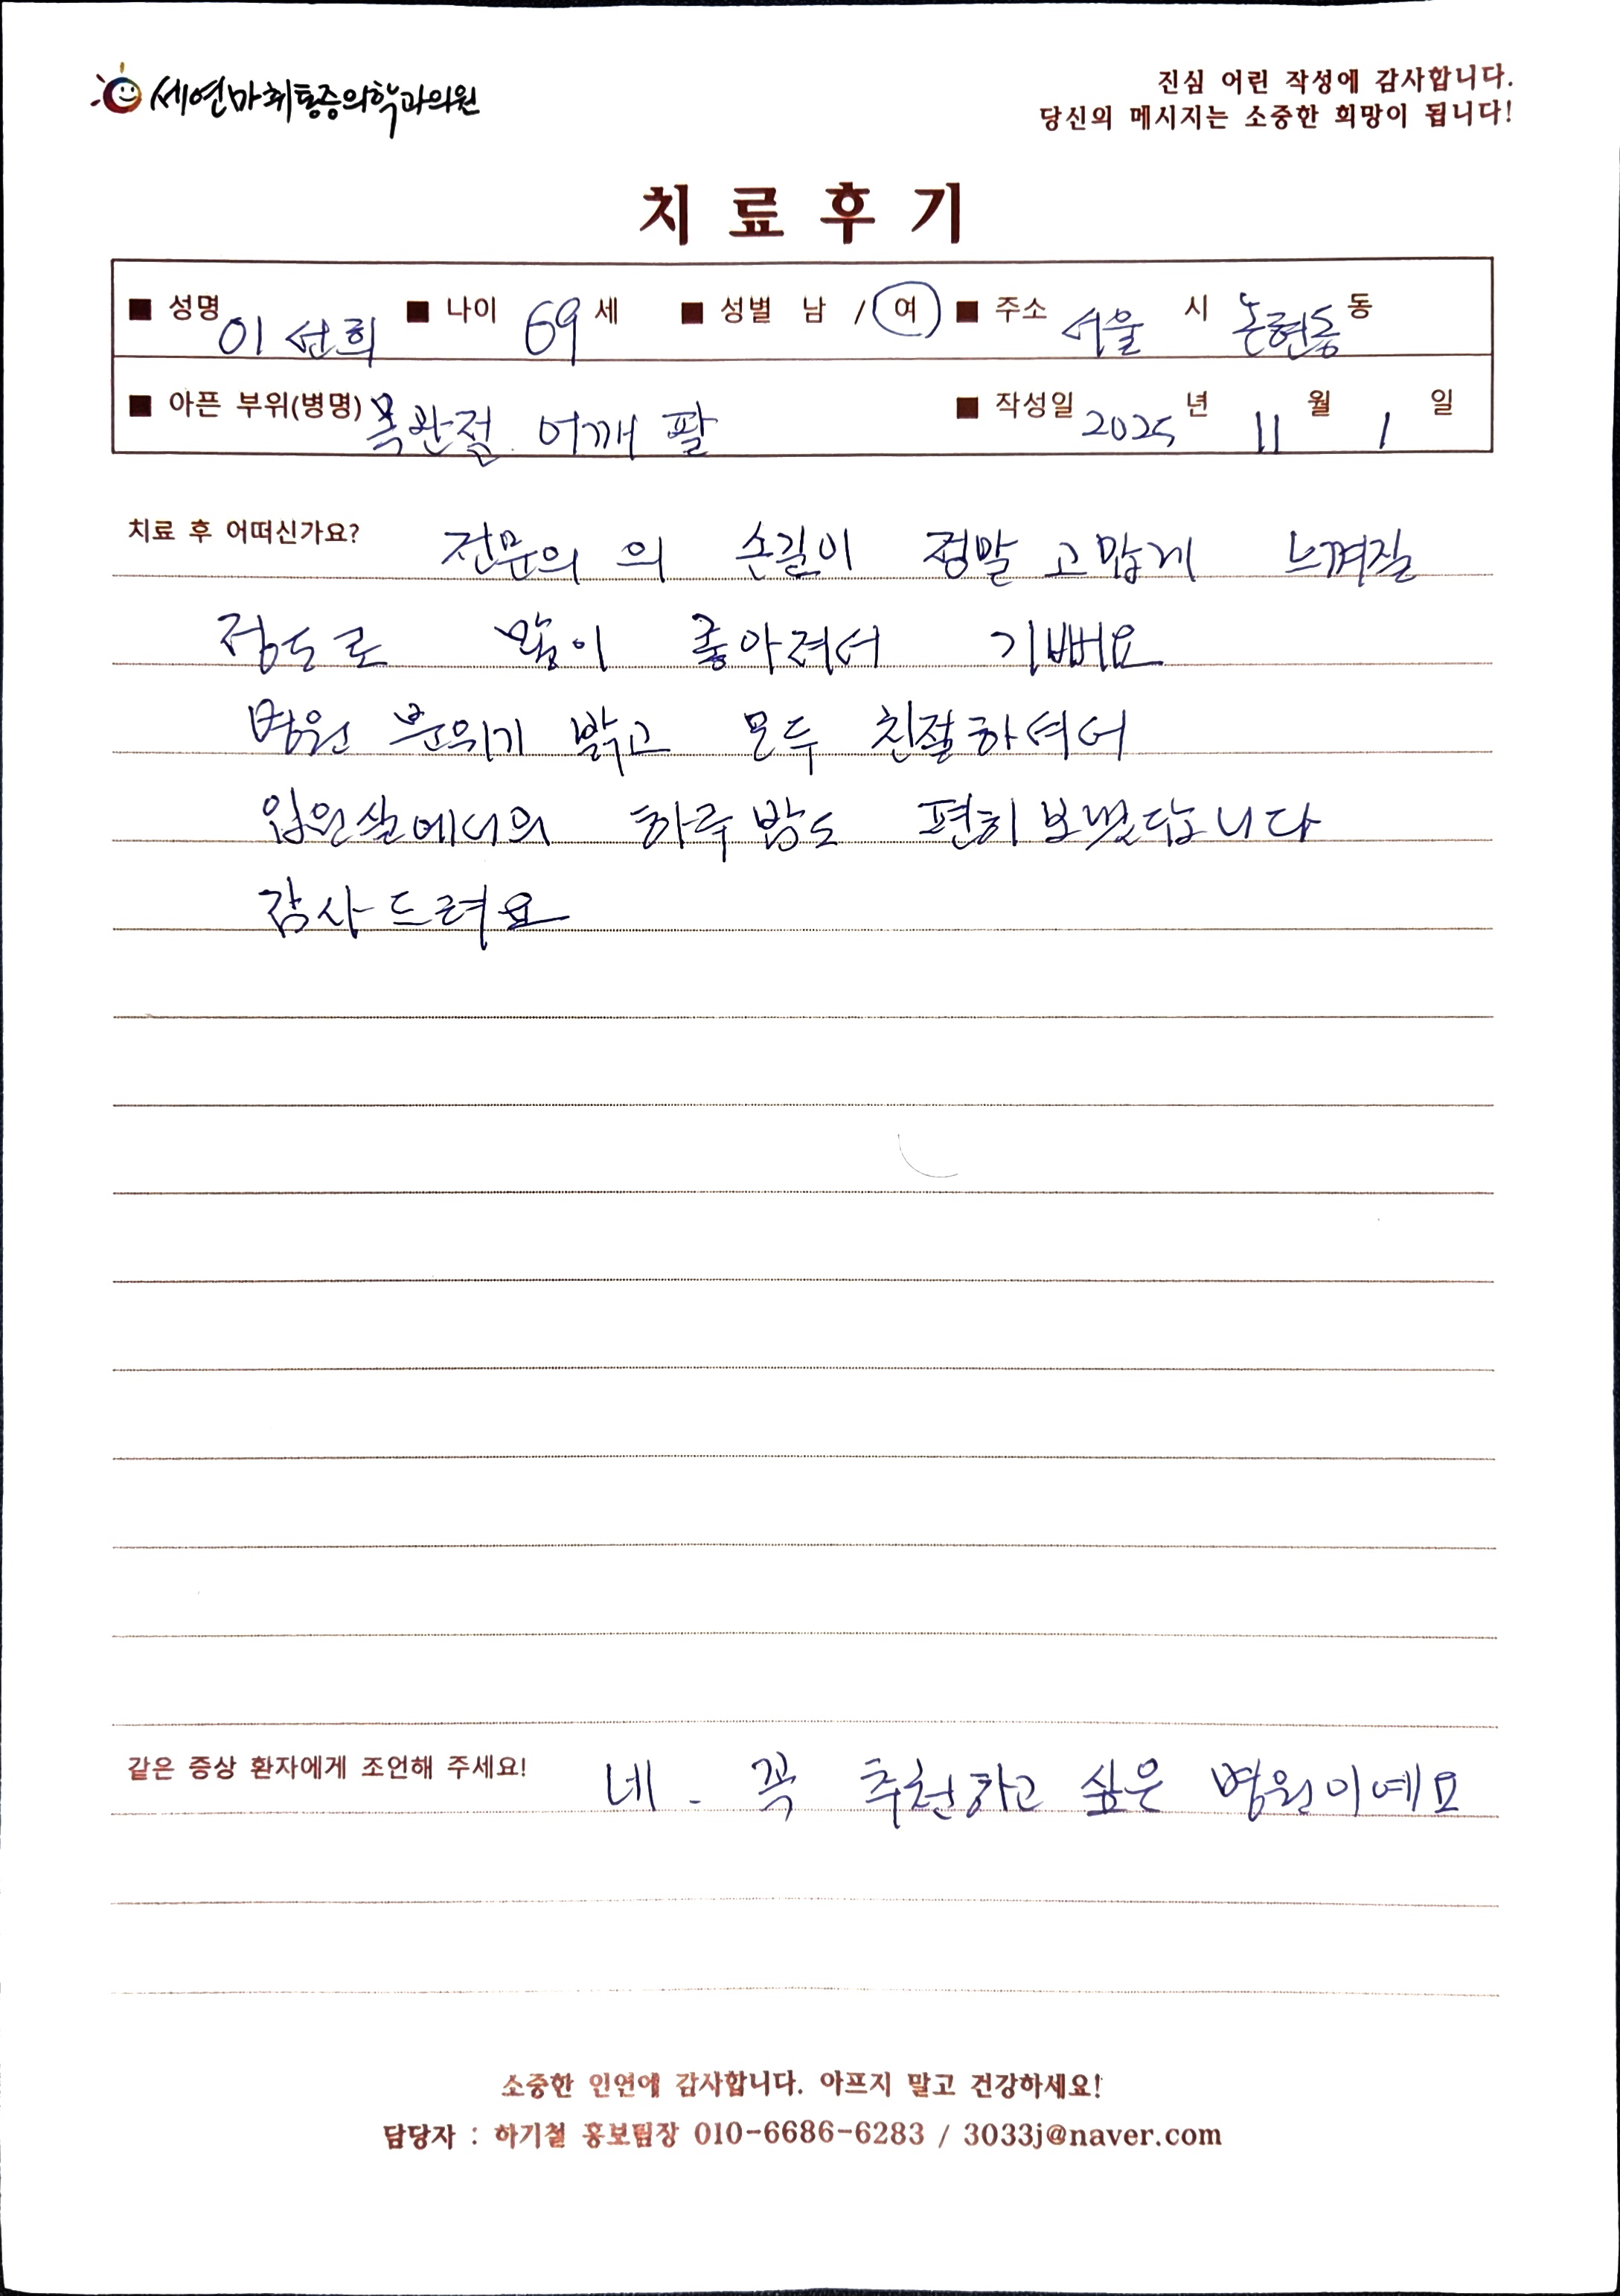 세연마취통증의학과의원
진심 어린 작성에 감사합니다.
당신의 메시지는 소중한 희망이 됩니다!
치료후기
■ 성명 이선희 ■ 나이 69 세 ■ 성별 남 / 여 ■ 주소 서울 시 논현동 동
■ 아픈 부위(병명) 목관절 어깨 팔 ■ 작성일 2025 년 11 월 1 일
치료 후 어떠신가요? 전문의 의 손길이 정말 고맙게 느껴질
정도로 많이 좋아져서 기뻐요
병원 분위기 밝고 모두 친절하셔서
입원실에서의 하루밤도 편히 보냈답니다
감사드려요
같은 증상 환자에게 조언해 주세요! 네. 꼭 추천하고 싶은 병원이예요
소중한 인연에 감사합니다. 아프지 말고 건강하세요!
담당자 : 하기철 홍보팀장 010-6686-6283 / 3033j@naver.com